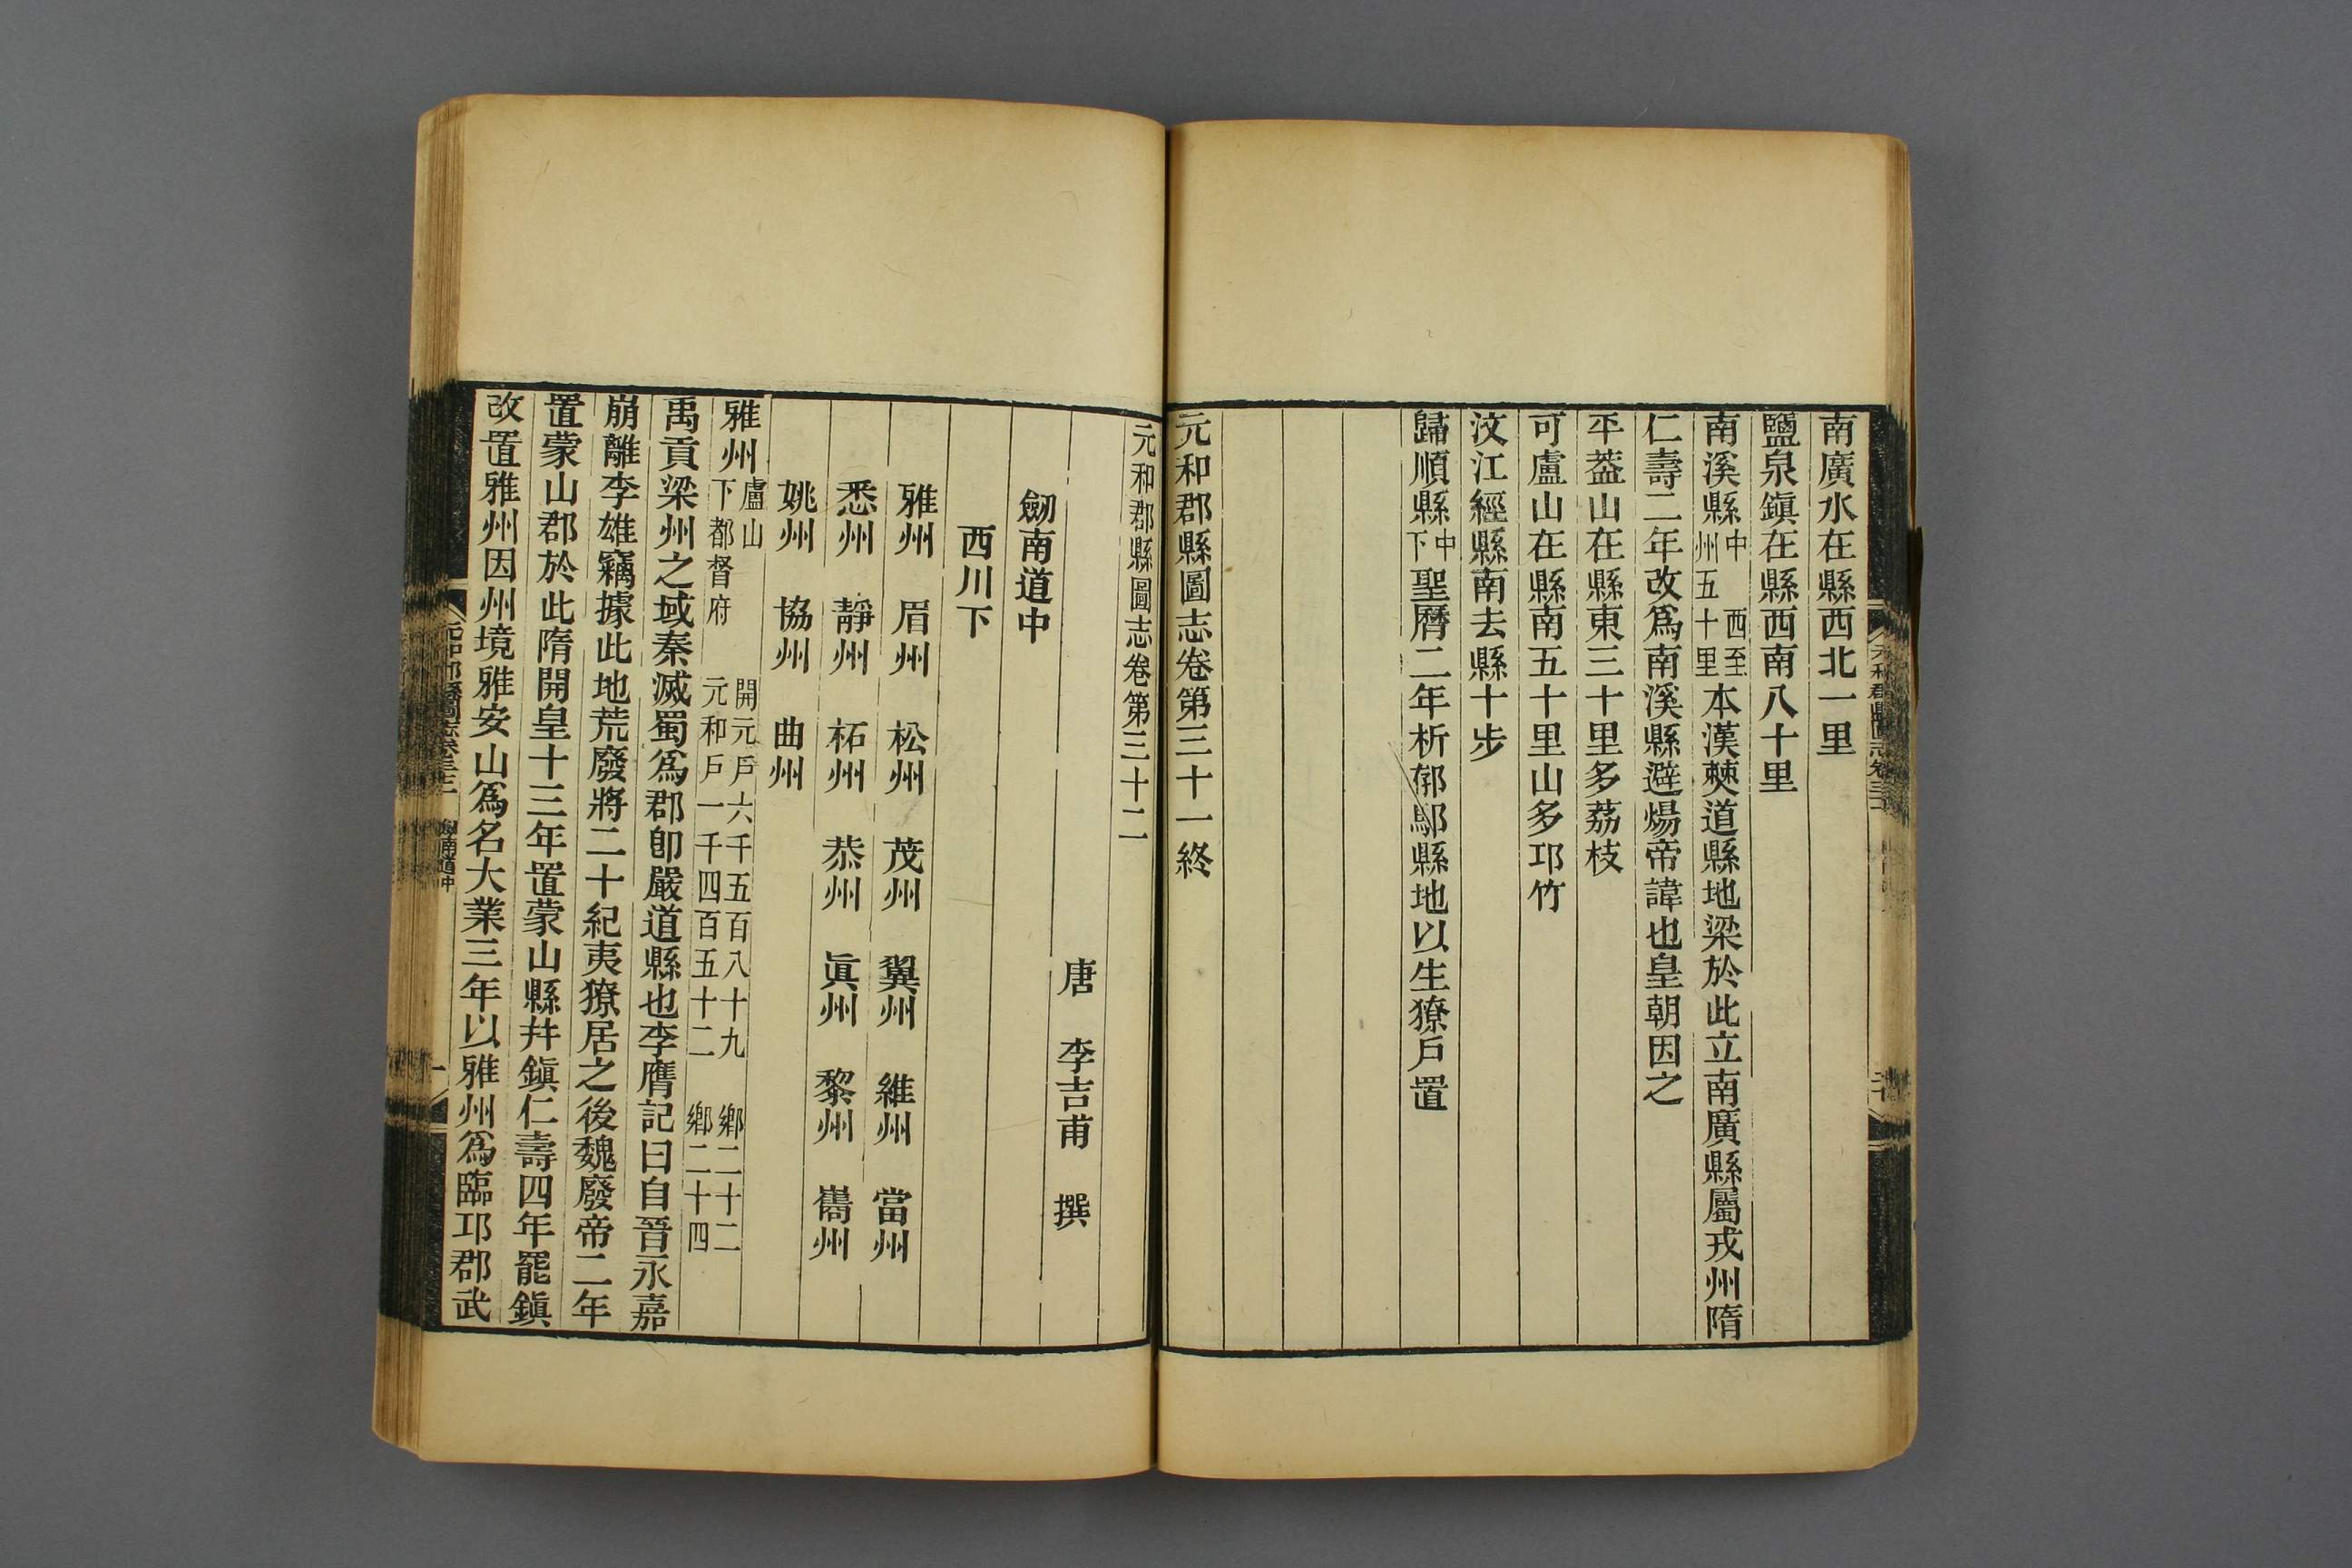 南廣水在縣西北一里
鹽泉鎮在縣西南八十里
南溪縣中 西至州五十里本漢僰道縣地梁於此立南廣縣屬戎州隋
仁壽二年改爲南溪縣避煬帝諱也皇朝因之
平葢山在縣東三十里多荔枝
可盧山在縣南五十里山多邛竹
汶江經縣南去縣十步
歸順縣中下聖曆二年析郁鄢縣地以生獠戸置
元和郡縣圖志卷第三十一終
元和郡縣圖志卷第三十二
唐 李吉甫 撰
劒南道中
西川下
雅州 眉州 松州 茂州 翼州 維州 當州
悉州 靜州 柘州 恭州 眞州 黎州 巂州
姚州 協州 曲州
雅州盧山下都督府 開元戸六千五百八十九 鄉二十二 元和戸一千四百五十二 鄉二十四
禹貢梁州之域秦滅蜀爲郡卽嚴道縣也李膺記曰自晉永嘉
崩離李雄竊據此地荒廢將二十紀夷獠居之後魏廢帝二年
置蒙山郡於此隋開皇十三年置蒙山縣幷鎭仁壽四年罷鎭
改置雅州因州境雅安山爲名大業三年以雅州爲臨邛郡武
元和郡縣圖志卷三十二 劒南道中 一